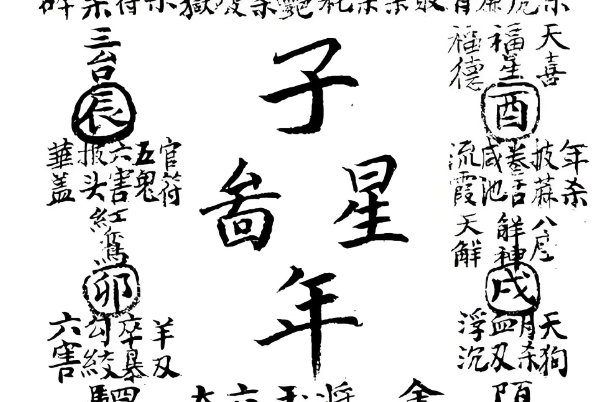 子
星 啚
年
天喜
福星
福德
酉
年杀
披麻
卷舌
咸池
流霞
八座
解神
天解
戌
天狗
月杀
血刃
浮沉
三台
辰
官符
五鬼
六害
披头
華盖
紅鸾
卯
羊刃
卒暴
勾絞
六害